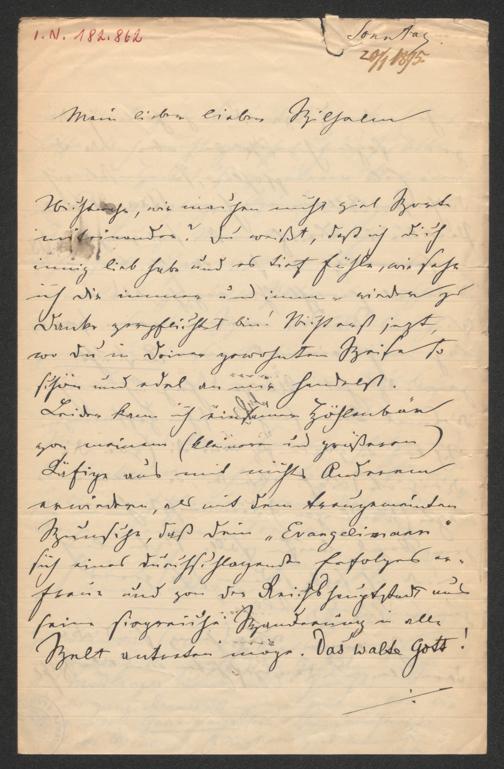 I. N. 182.862
Sonntag
20/1 1895.
Mein lieber lieber Wilhelm
Nichtwahr, wir machen nicht viel Worte
miteinander? Du weißt, daß ich dich
innig lieb habe und es tief fühle, wie sehr
ich dir immer und immer wieder zu
Danke verpflichtet bin! Nicht erst jetzt,
wo du in Deiner gewohnten Weise so
schön und edel an mir handelst.
Leider kann ich einsamer Höhlenbär
von meinem (kleineren und größeren)
Käfige aus mit nichts Anderem
erwiedern, als mit dem treugemeinten
Wunsche, daß dein „Evangelimann"
sich eines durchschlagenden Erfolges er-
freue und von der Reichshauptstadt aus
seine siegreiche Wanderung in alle
Welt antreten möge. Das walte Gott!